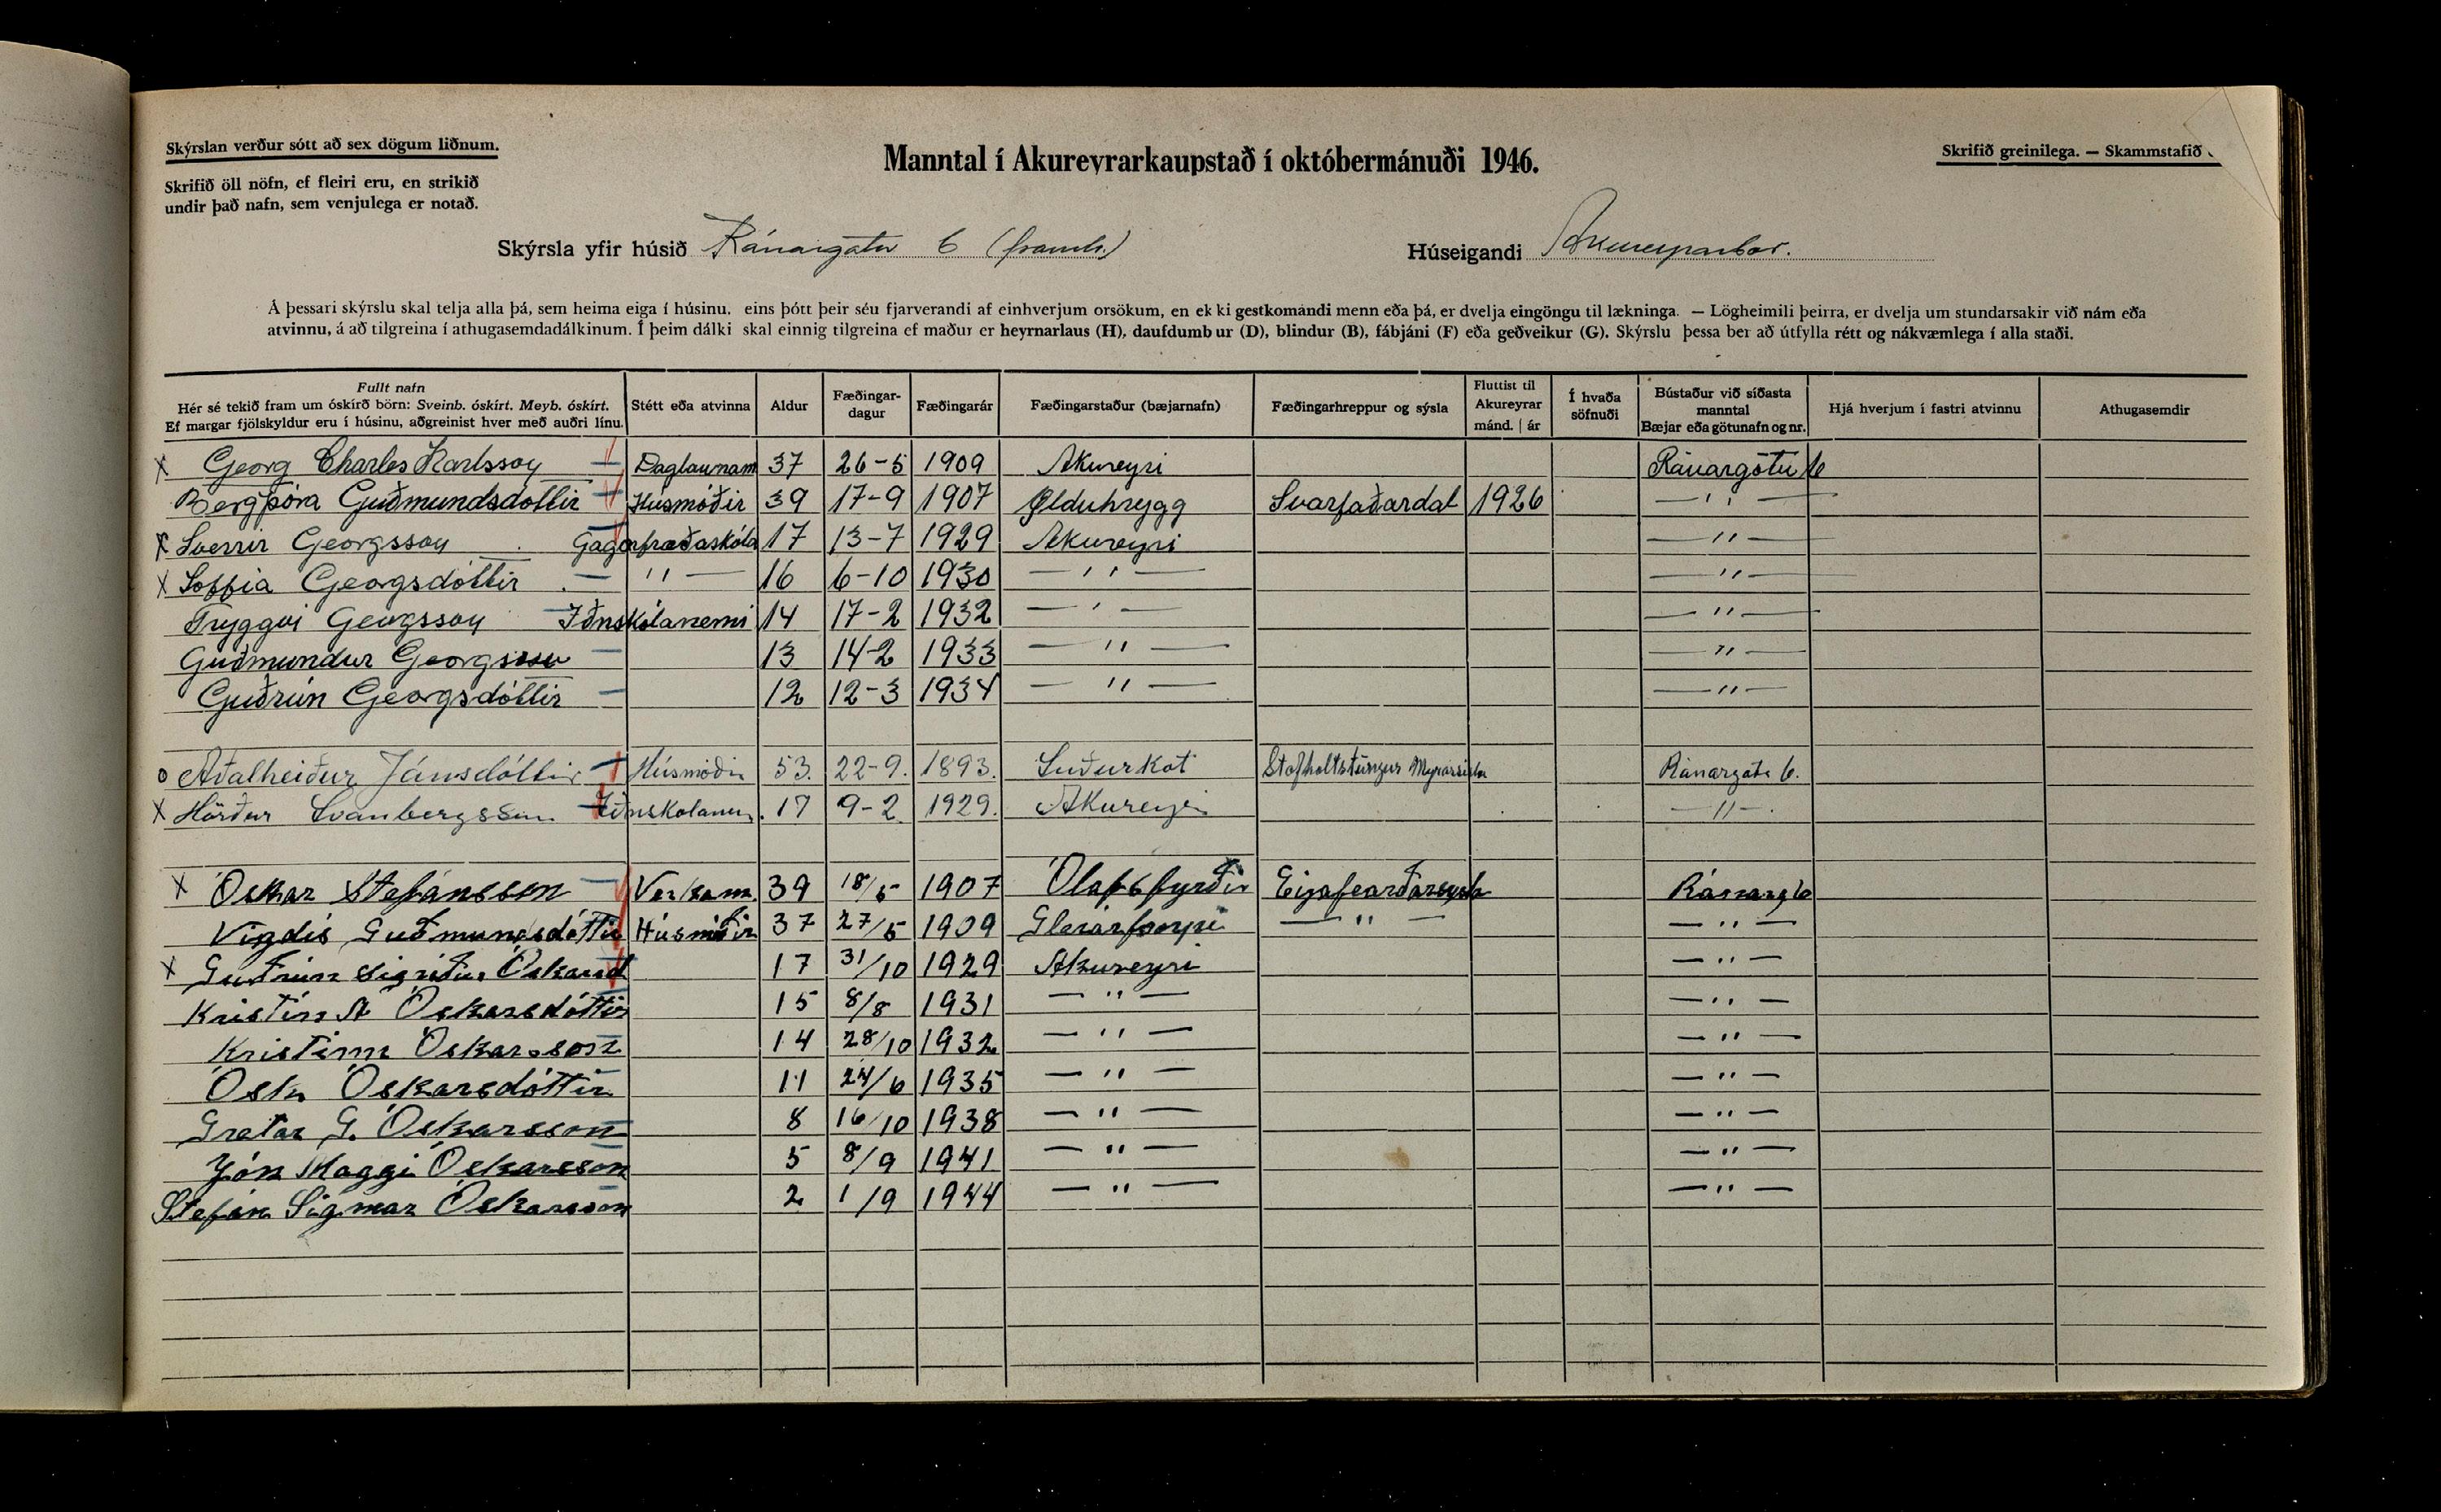 Skýrslan verður sótt að sex dögum liðnum.
Skrifið öll nöfn, ef fleiri eru, en strikið
undir það nafn, sem venjulega er notað.
Manntal í Akureyrarkaupstað í októbermánuði 1946.
Skrifið greinilega. — Skammstafið
Skýrsla yfir húsið Ránargötu 6 (framh.)
Húseigandi Akureyrarbær.
Á þessari skýrslu skal telja alla þá, sem heima eiga í húsinu, eins þótt þeir séu fjarverandi af einhverjum orsökum, en ekki gestkomandi menn eða þá, er dvelja eingöngu til lækninga. — Lögheimili þeirra, er dvelja um stundarsakir við nám eða
atvinnu, á að tilgreina í athugasemdadálkinum. Í þeim dálki skal einnig tilgreina ef maður er heyrnarlaus (H), daufdumbur (D), blindur (B), fábjáni (F) eða geðveikur (G). Skýrslu þessa ber að útfylla rétt og nákvæmlega í alla staði.
Fullt nafn
Hér sé tekið fram um óskírð börn: Sveinb. óskírt. Meyb. óskírt.
Ef margar fjölskyldur eru í húsinu, aðgreinist hver með auðri línu.
Stétt eða atvinna
Aldur
Fæðingar-
dagur
Fæðingarár
Fæðingarstaður (bæjarnafn)
Fæðingarhreppur og sýsla
Fluttist til
Akureyrar
mánd. | ár
Í hvaða
söfnuði
Bústaður við síðasta
manntal
Bæjar eða götunafn og nr.
Hjá hverjum í fastri atvinnu
Athugasemdir
X Georg Charles Karlsson Daglaunam 37 26-5 1909 Akureyri Ránargötu 6
Bergþóra Guðmundsdóttir Húsmóðir 39 17-9 1907 Ölduhrygg Svarfaðardal 1926 — " —
X Sverrir Georgsson Gagnfræðaskóla 17 13-7 1929 Akureyri — " —
X Soffia Georgsdóttir — " — 16 6-10 1930 — " — — " —
Tryggvi Georgsson Iðnskólanemi 14 17-2 1932 — " — — " —
Guðmundur Georgsson 13 14-2 1933 — " — — " —
Guðrún Georgsdóttir 12 12-3 1934 — " — — " —
o Aðalheiður Jónsdóttir Húsmóðir 53. 22-9. 1893. Suðurkot Stafholtstungur Mýrarsýsla Ránargata 6.
X Hörður Svanbergsson Iðnskolanem. 17 9-2 1929. Akureyri — " —
X Óskar Stefánsson Verkam. 39 18/5 1907 Ólafsfyrðir Eyjafearðarsysla Ránarg 6
Vigdís Guðmundsdóttir Húsmóðir 37 27/5 1909 Glerárþorpi — " — — " —
X Guðrún Sigriður Óskarsd 17 31/10 1929 Akureyri — " —
Kristín A Óskarsdóttir 15 8/8 1931 — " — — " —
Kristinn Óskarsson 14 28/10 1932 — " — — " —
Ósk Óskarsdóttir 11 24/6 1935 — " — — " —
Gretar G. Óskarsson 8 16/10 1938 — " — — " —
Jón Maggi Óskarsson 5 8/9 1941 — " — — " —
Stefán Sigmar Óskarsson 2 1/9 1944 — " — — " —